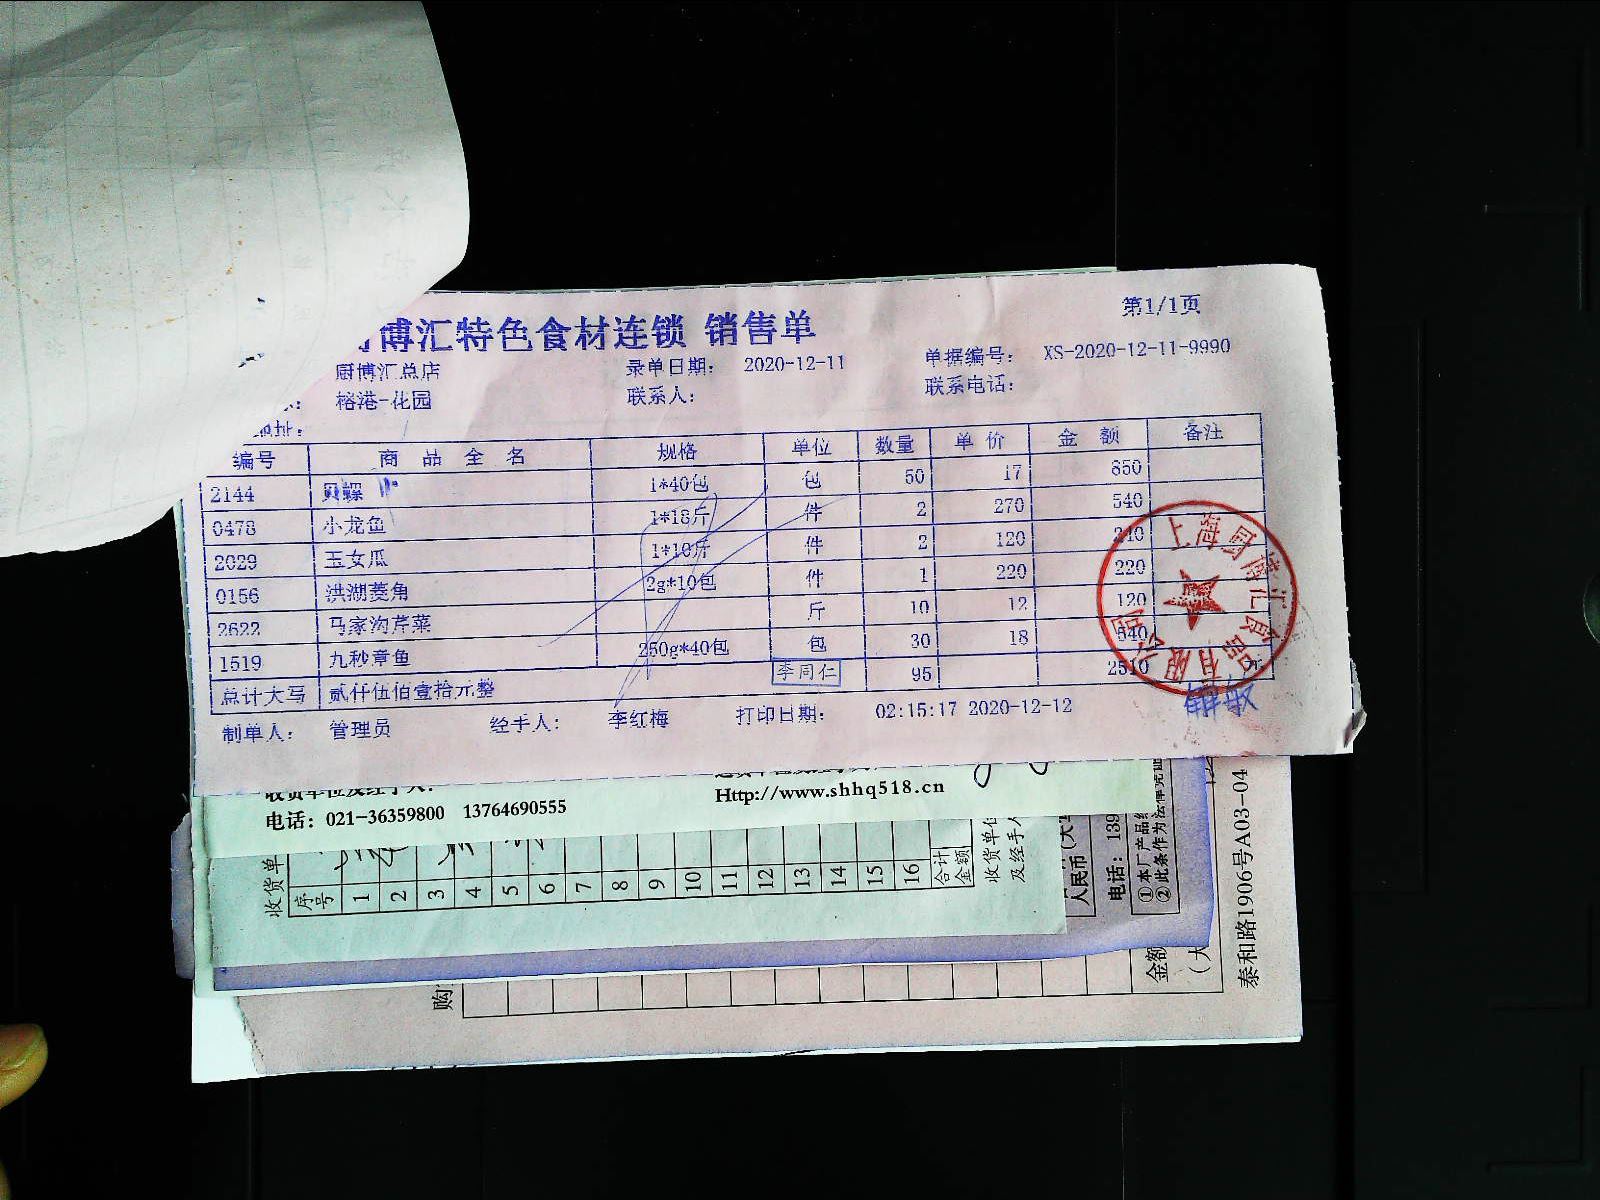 博汇特色食材连锁 销售单
第1/1页
厨博汇总店 录单日期: 2020-12-11 单据编号: XS-2020-12-11-9990
榕港-花园 联系人: 联系电话:
地址:
编号 商品全名 规格 单位 数量 单价 金额 备注
2144 贝螺 1*40包 包 50 17 850
0478 小龙鱼 1*18斤 件 2 270 540
2029 玉女瓜 1*10斤 件 2 120 240
0156 洪湖菱角 2g*10包 件 1 220 220
2622 马家沟芹菜 斤 10 12 120
1519 九秒章鱼 250g*40包 包 30 18 540
总计大写 贰仟伍佰壹拾元整 李同仁 95 2510
制单人: 管理员 经手人: 李红梅 打印日期: 02:15:17 2020-12-12
上海厨博汇食品有限公司
收货单位及经手人:
Http://www.shhq518.cn
电话: 021-36359800 13764690555
收货单
序号 1 2 3 4 5 6 7 8 9 10 11 12 13 14 15 16 合计金额
收货单位
及经手人
人民币
(大
电话: 139
①本厂产品
②此条作为法律凭证
购
金额
(大
泰和路1906号A03-04